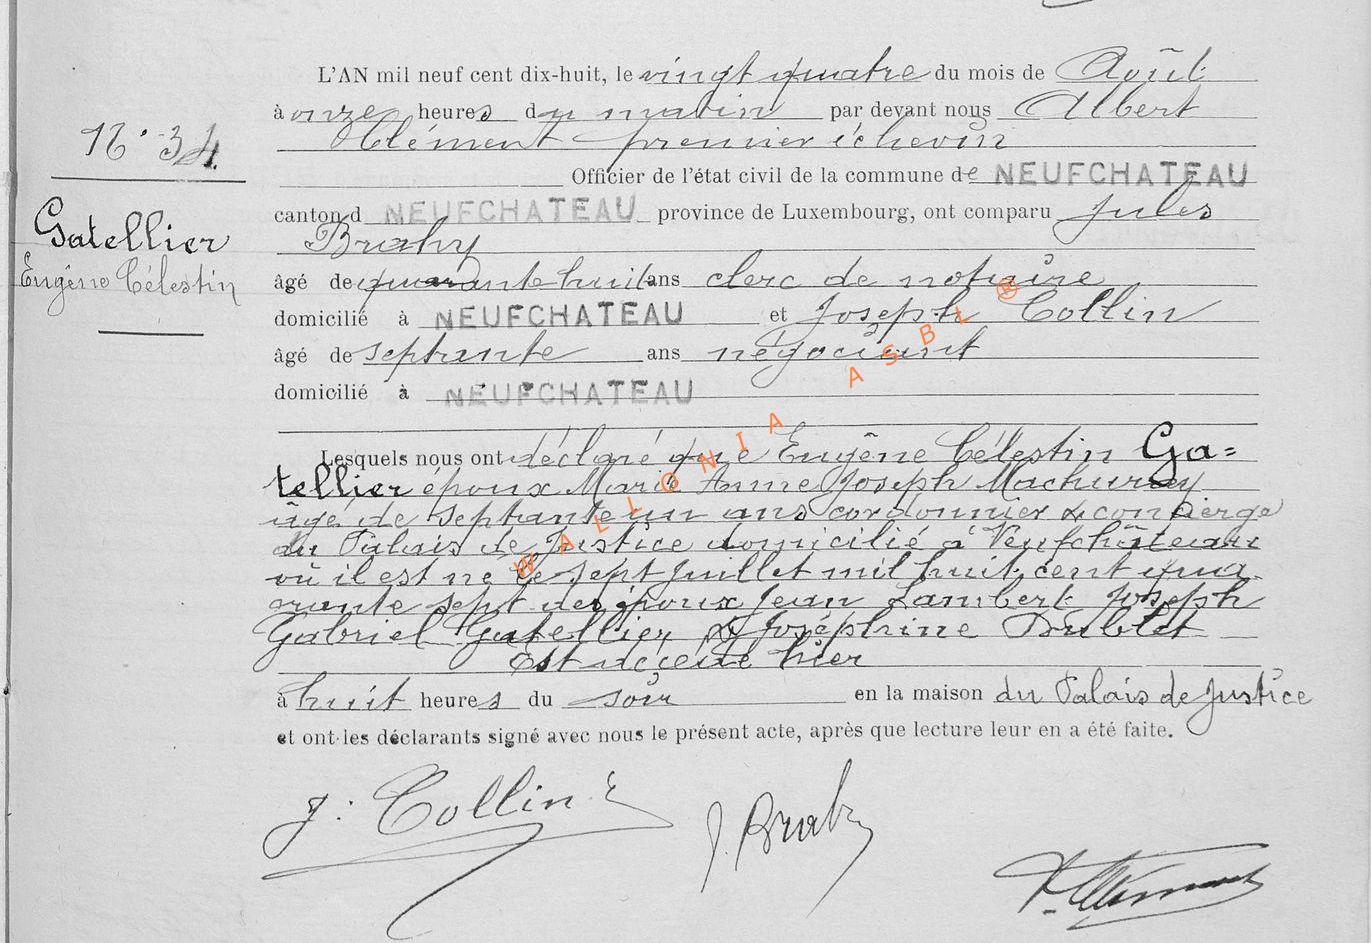 L'AN mil neuf cent dix-huit, le vingt quatre du mois de Août
à onze heures du matin par devant nous Albert
Clément premier échevin
Officier de l'état civil de la commune de NEUFCHATEAU
canton d NEUFCHATEAU province de Luxembourg, ont comparu Jules
Brahy
âgé de quarante huit ans clerc de notaire
domicilié à NEUFCHATEAU et Joseph Collin
âgé de septante ans négociant
domicilié à NEUFCHATEAU
N° 34
Gatellier
Eugène Célestin
Lesquels nous ont déclaré que Eugène Célestin Ga=
tellier époux Marie Anne Joseph Machurey
âgé de septante un ans cordonnier & concierge
du Palais de Justice domicilié à Neufchâteau
où il est né le sept juillet mil huit cent qua-
rante sept des époux Jean Lambert Joseph
Gabriel Gatellier & Joséphine
est décédé hier
à huit heures du soir en la maison du Palais de Justice
et ont les déclarants signé avec nous le présent acte, après que lecture leur en a été faite.
J. Collin
J. Brahy
WALLONIA ASBL ®